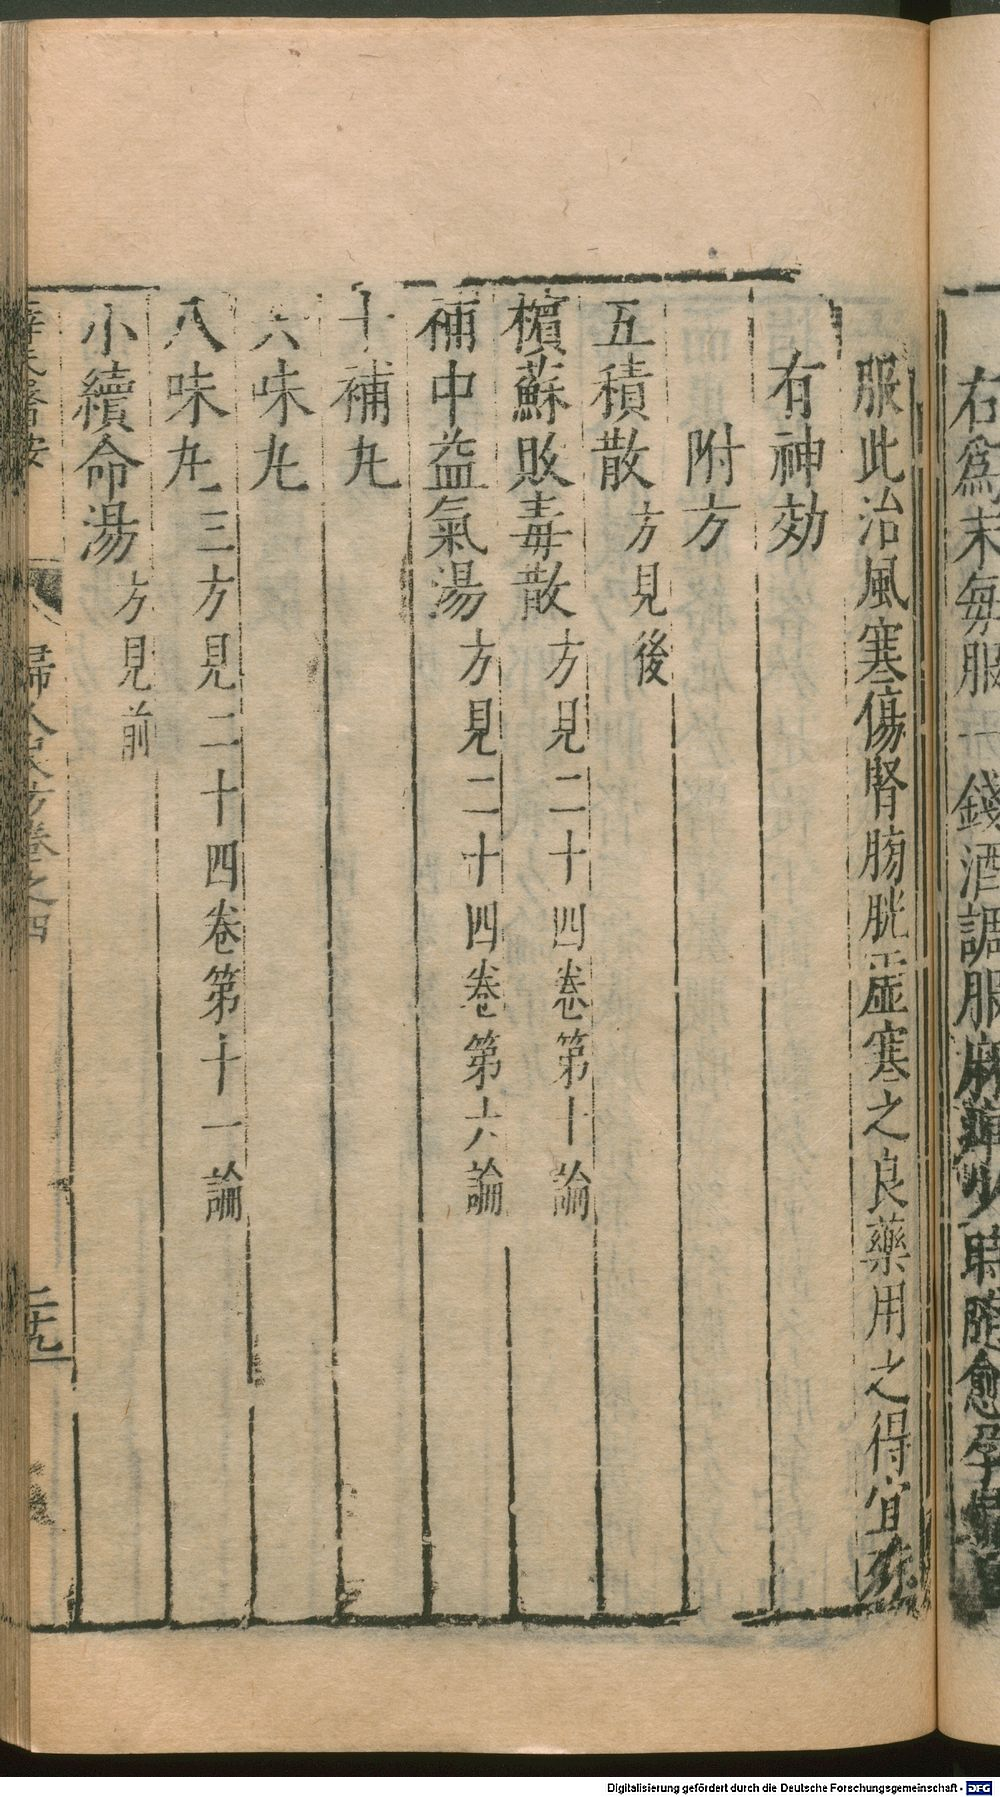 右爲末每服一錢酒調服
服此治風寒傷腎膀胱虛寒之良藥用之得宜
有神効
附方
五積散方見後
檳蘇敗毒散方見二十四卷第十論
補中益氣湯方見二十四卷第六論
十補丸
六味丸
八味丸三方見二十四卷第十一論
小續命湯方見前
薛氏醫按 婦人良方卷之四 二十九
Digitalisierung gefördert durch die Deutsche Forschungsgemeinschaft - DFG